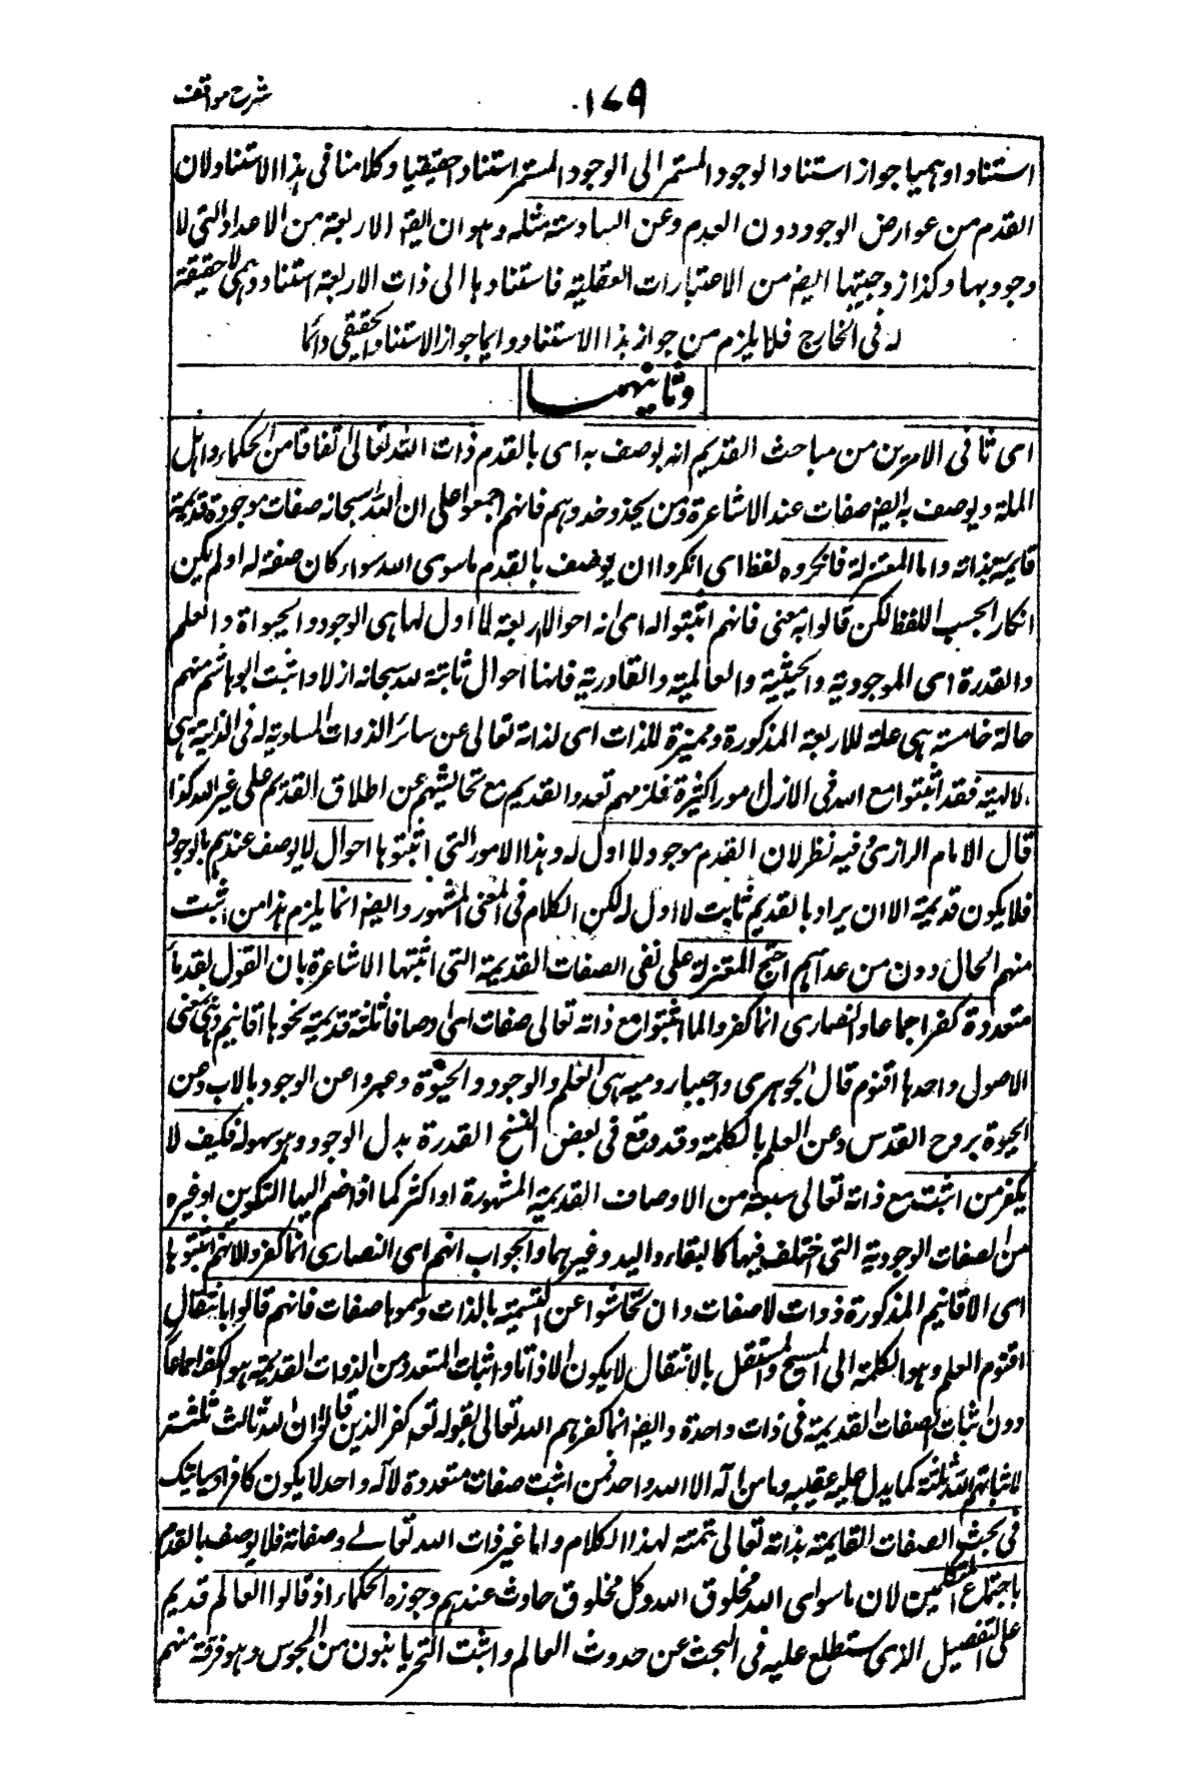 شرح مواقف
١٧٩
استنادا وهميا جواز استناد الوجود المستمر الى الوجود المستمر استنادا حقيقيا وكلامنا فى هذا الاستناد ولان
القدم من عوارض الوجود دون العدم وعن السادسة مثله وهو ان ايض الاربعة من الاعداد التى لا
وجود بها وكذا زوجيتها ايض من الاعتبارات العقلية فاستنادها الى ذات الاربعة استناد وهمى لا حقيقة
له فى الخارج فلا يلزم من جواز هذا الاستناد دايما جواز الاستناد الحقيقى دائما
وثانيهما
اى ثانى الامرين من مباحث القديم انه يوصف به اى بالقدم ذات الله تعالى اتفاقا من الحكماء واهل
الملة ويوصف به ايض صفات عند الاشاعرة ومن يحذو حذوهم فانهم اجمعوا على ان لله سبحانه صفات موجودة قديمة
قايمة بذاته واما المعتزلة فانكروه لفظا اى انكروا ان يوصف بالقدم ماسوى الله سواء كان صفة له او لم يكن
انكارا بحسب اللفظ لكن قالوا به معنى فانهم اثبتوا له اى لله احوالا اربعة لا اول لها هى الوجود والحيواة والعلم
والقدرة اى الموجودية والحيثية والعالمية والقادرية فانها احوال ثابتة لله سبحانه ازلا واثبت ابو هاشم منهم
حالة خامسة هى علة للاربعة المذكورة ومميزة للذات اى لذاته تعالى عن سائر الذوات المساوية له فى الذاتية هى
الالهية فقد اثبتوا مع الله فى الازل امورا كثيرة فلزمهم تعدد القديم مع تحاشيهم عن اطلاق القديم على غير الله كذا
قال الامام الرازى وفيه نظر لان القدم موجود لا اول له وهذا الامور التى اثبتوها احوال لا يوصف عندهم بالوجود
فلا يكون قديمة الا ان يراد بالقديم ثابت لا اول له لكن الكلام فى المعنى المشهور وايض انما يلزم هذا من اثبت
منهم الحال دون من عداهم احتج المعتزلة على نفى الصفات القديمة التى اثبتها الاشاعرة بان القول بقدماء
متعددة كفر اجماعا والنصارى انما كفروا لما اثبتوا مع ذاته تعالى صفات اى اوصافا ثلثة قديمة سموها اقانيم وهى بمعنى
الاصول واحدها اقنوم قال الجوهرى واحسبها رومية هى العلم والوجود والحيوة وعبروا عن الوجود بالاب وعن
الحيوة بروح القدس وعن العلم بالكلمة وقد وقع فى بعض النسخ القدرة بدل الوجود وهو سهو له فكيف لا
يكفر من اثبت مع ذاته تعالى سبعة من الاوصاف القديمة المشهورة او اكثر كما اذا ضم اليها التكوين او غيره
من الصفات الوجودية التى اختلف فيها كالبقاء واليد وغيرهما والجواب انهم اى النصارى انما كفروا لانهم اثبتوها
اى الاقانيم المذكورة ذوات لا صفات وان تحاشوا عن التسمية بالذات وسموها صفات فانهم قالوا بانتقال
اقنوم العلم وهو الكلمة الى المسيح والمستقل بالانتقال لا يكون الا ذاتا واثبات المتعدد من الذوات القديمة هو الكفر اجماعا
دون اثبات الصفات القديمة فى ذات واحدة وايض انما كفرهم الله تعالى بقوله لقد كفر الذين قالوا ان الله ثالث ثلثة
لاثباتهم آلهة ثلثة كما يدل عليه عقيبه وما من اله الا اله واحد فمن اثبت صفات متعددة لاله واحد لا يكون كافرا وسياتيك
فى بحث الصفات القايمة بذاته تعالى تتمة لهذا الكلام واما غير ذات الله تعالى وصفاته فلا يوصف بالقدم
باجماع المتكلمين لان ماسوى الله مخلوق الله وكل مخلوق حادث عندهم وجوزه الحكماء اذ قالوا العالم قديم
على التفصيل الذى ستطلع عليه فى البحث عن حدوث العالم واثبت الحريانيون من المجوس وهو فرقة منهم